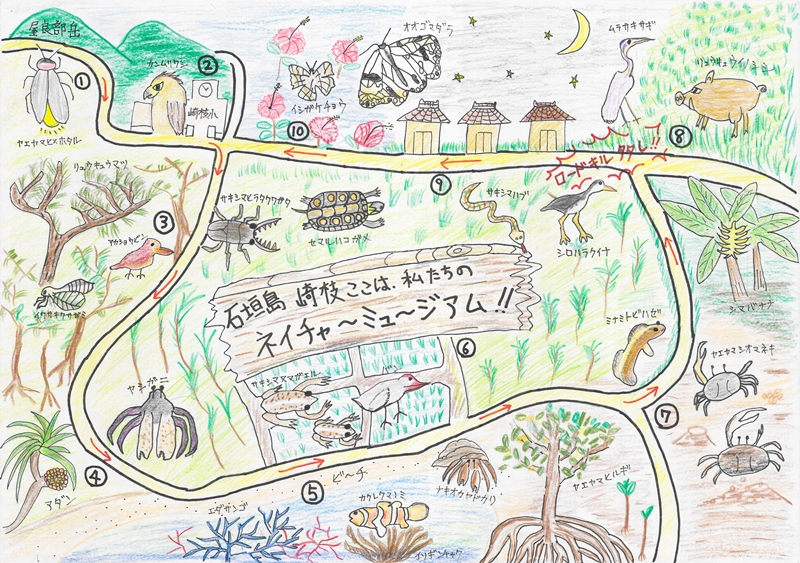 屋良部岳
①
ヤエヤマヒメホタル
カンムリワシ
②
崎枝小
オオゴマダラ
イシガケチョウ
⑩
ムラサキサギ
リュウキュウイノシシ
⑧
ロードキル タタレ!!
⑨
リュウキュウマツ
③
アカショウビン
イワサキクサゼミ
サキシマヒラタクワガタ
セマルハコガメ
サキシマハブ
シロハラクイナ
シマバナナ
石垣島 崎枝ここは、私たちの
ネイチャ〜ミュ〜ジアム!!
⑥
サキシマヌマガエル
バン
ミナミトビハゼ
ヤエヤマシオマネキ
⑦
ヤシガニ
④
アダン
⑤
ビ〜チ
エダサンゴ
カクレクマノミ
イソギンチャク
ナキオカヤドカリ
ヤエヤマヒルギ